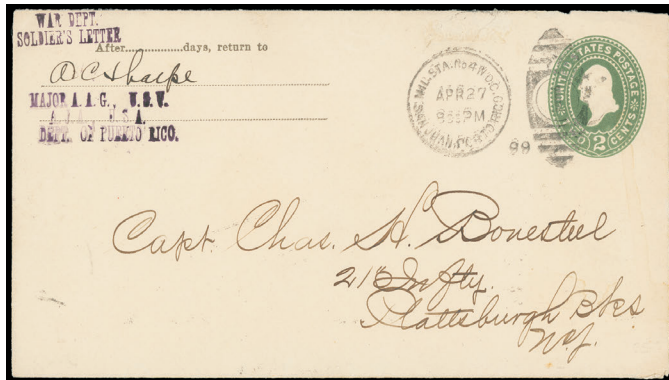 WAR DEPT.
SOLDIER'S LETTER
After..............days, return to
A C Sharpe
MAJOR A. A. G., U. S. V.
A. J. A., U. S. A.
DEPT. OF PUERTO RICO.
MIL. STA. NO.
APR 27
PM
SAN JUAN, PORTO RICO
99
UNITED STATES POSTAGE
TWO 2 CENTS
Capt. Chas. H. Bonesteel
21st Infty.
Plattsburgh Bks
N.Y.